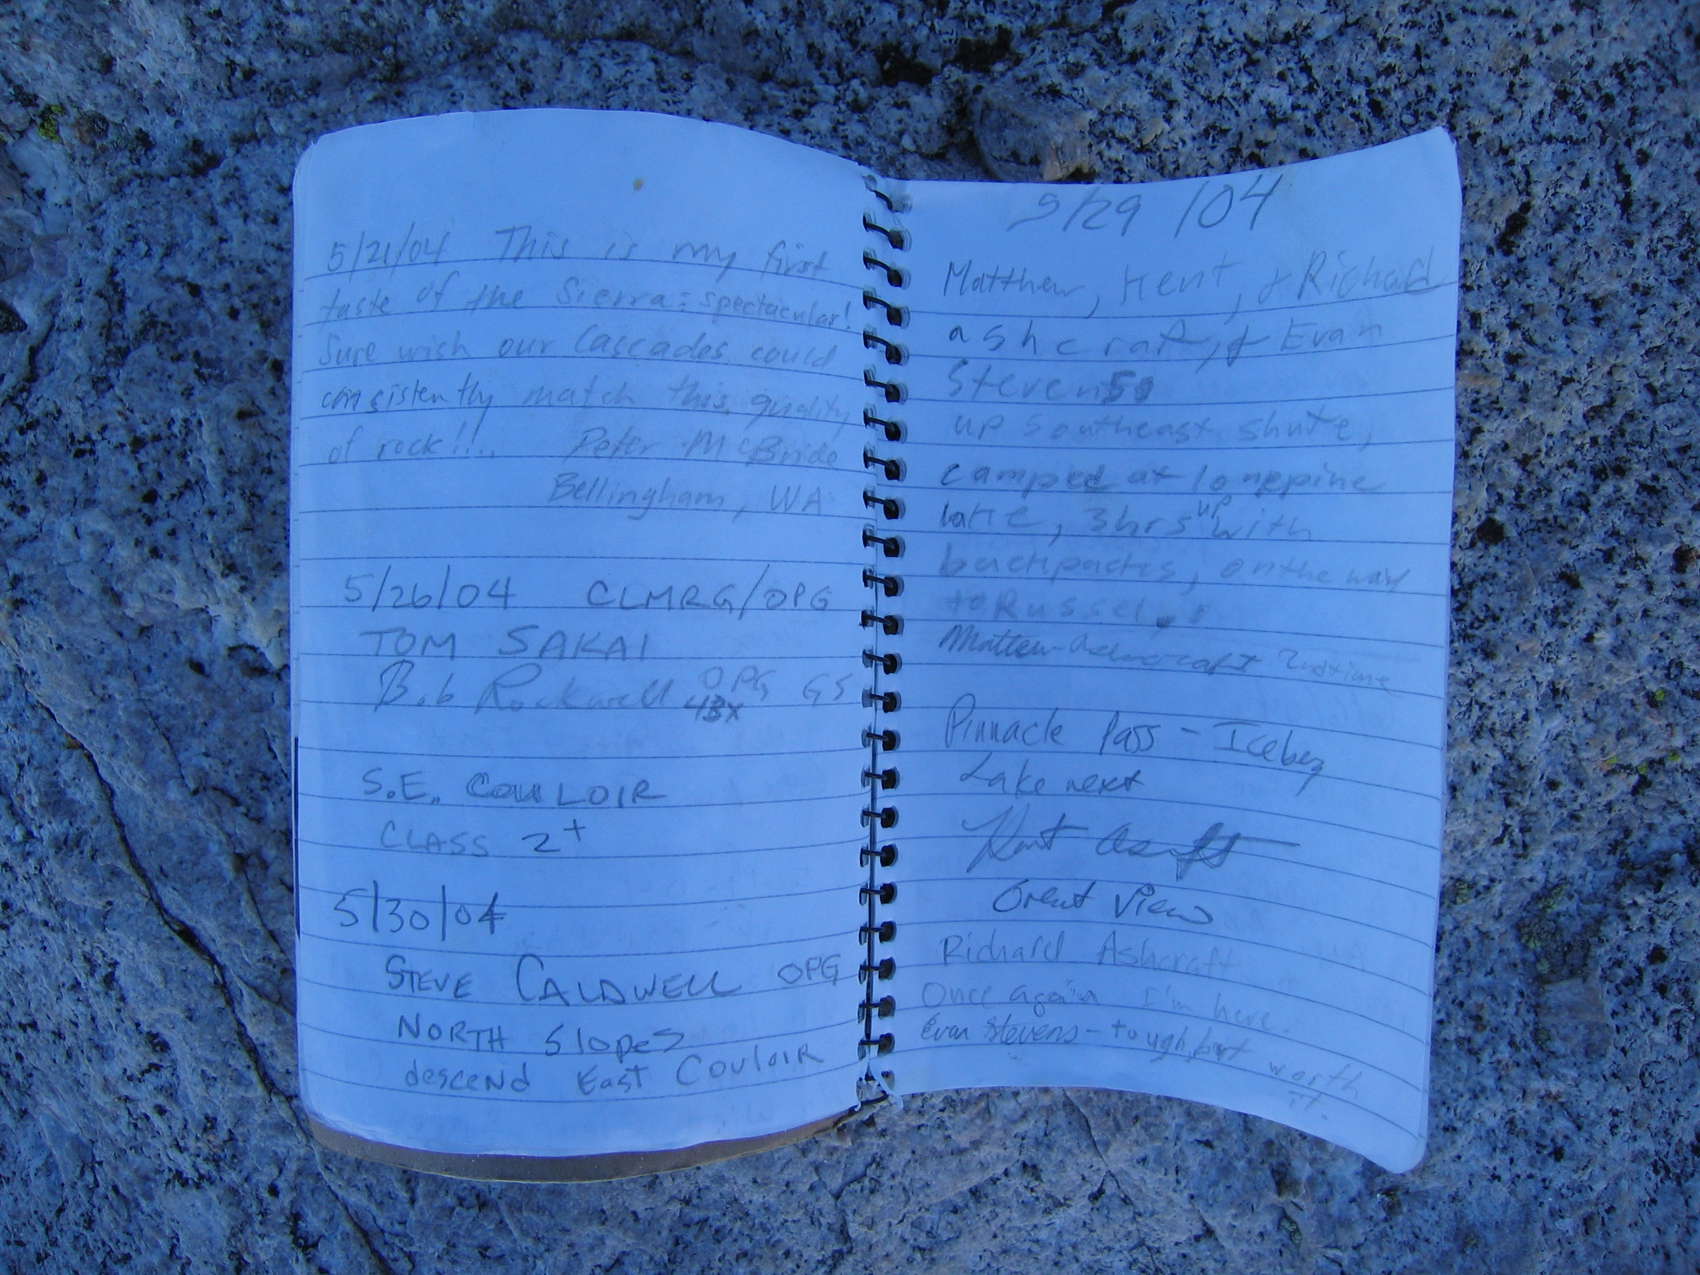 5/21/04 This is my first
taste of the Sierra: spectacular!
Sure wish our Cascades could
consistently match this quality
of rock!!! Peter McBride
Bellingham, WA
5/26/04 CLMRG/OPG
TOM SAKAI
Bob Rockwell OPG GS
43x
S.E. COULOIR
CLASS 2+
5/30/04
STEVE CALDWELL OPG
NORTH Slopes
descend East Couloir
5/29/04
Matthew, Kent, & Richard
ashcraft, & Evan
Stevens
up southeast shute,
camped at lonepine
lake, 3hrs up with
backpacks, on the way
to Russel.
Pinnacle Pass - Iceberg
Lake next
Kent
Great View
Richard Ashcraft
Once again I'm here.
Evan Stevens - tough, but worth
it.